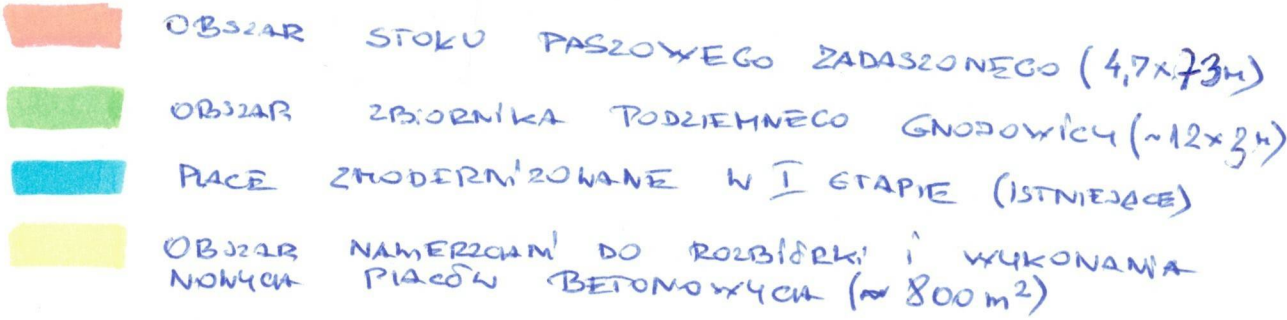 OBSZAR STOŁU PASZOWEGO ZADASZONEGO (4,7x73m)
OBSZAR ZBIORNIKA PODZIEMNEGO GNOJOWICY (~12x3m)
PLACE ZMODERNIZOWANE W I ETAPIE (ISTNIEJĄCE)
OBSZAR NAWIERZCHNI DO ROZBIÓRKI i WYKONANIA
NOWYCH PLACÓW BETONOWYCH (~ 800 m²)